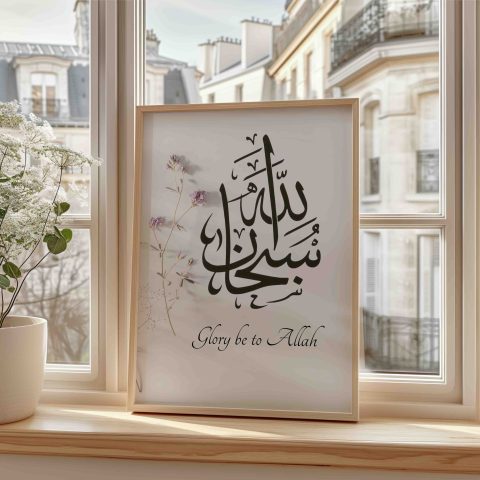 سُبْحَانَ اللَّه
Glory be to Allah